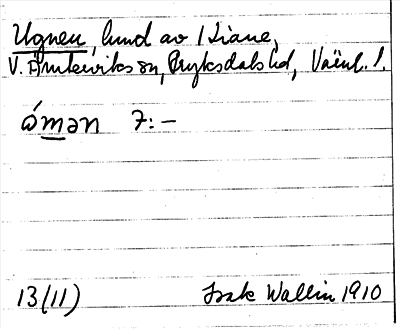 Ugnen, lund av /
V. Ämterviks sn, Fryksdals hd, Värml. l.
ə́mən 7:-
13(11) Isak Wallin 1910